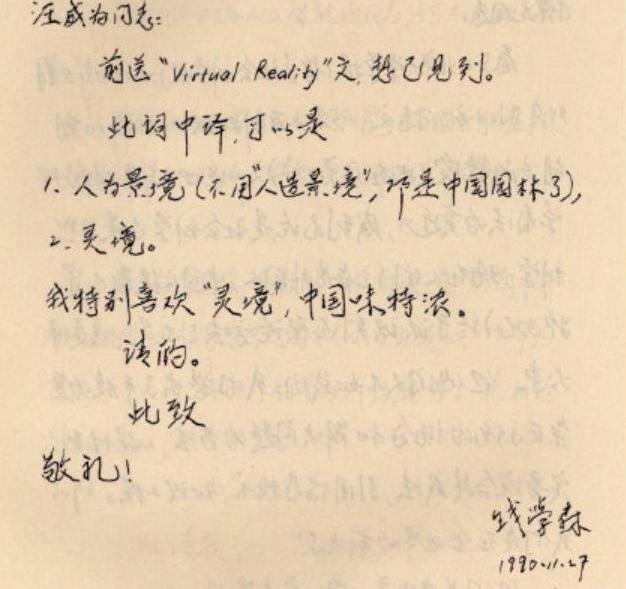 汪成为同志:
前送“Virtual Reality”文,想已见到。
此词中译,可以是
1. 人为景境(不用“人造景境”,那是中国园林了),
2. 灵境。
我特别喜欢“灵境”,中国味特浓。
请酌。
此致
敬礼!
钱学森
1990.11.27